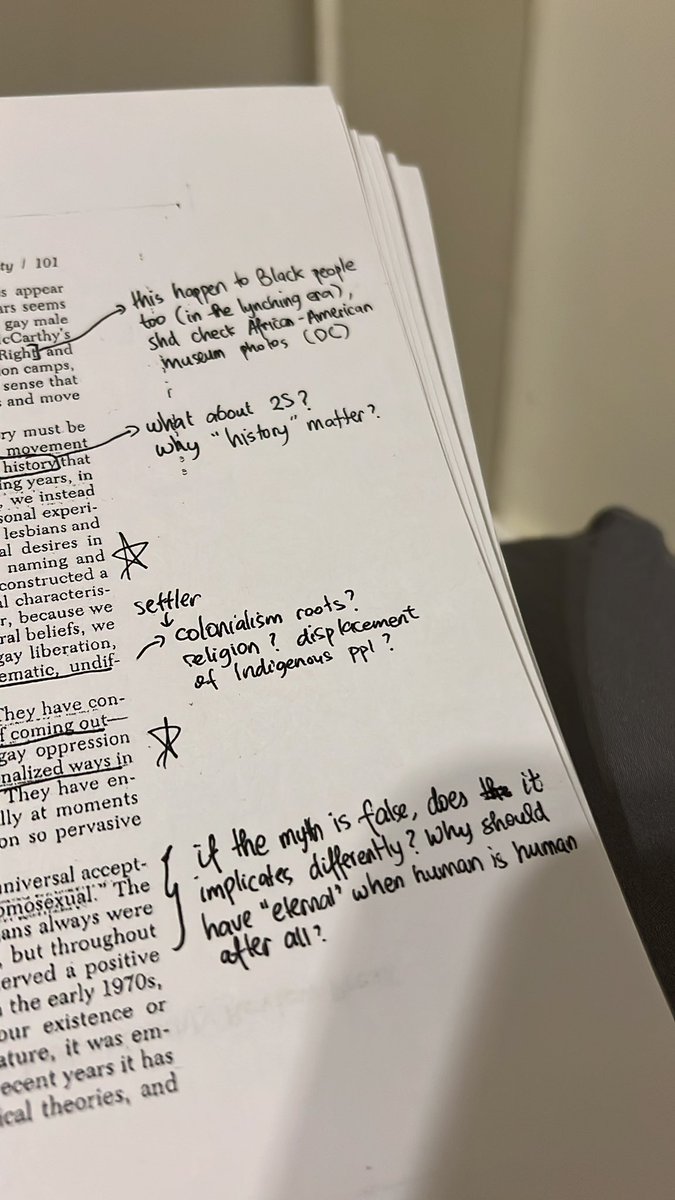 ty / 101
s appear
ars seems
gay male
cCarthy's
Right and
on camps,
sense that
s and move
ry must be
movement
history that
ing years, in
, we instead
sonal experi-
lesbians and
al desires in
naming and
constructed a
al characteris-
r, because we
ral beliefs, we
gay liberation,
ematic, undif-
They have con-
f coming out—
gay oppression
nalized ways in
They have en-
lly at moments
on so pervasive
universal accept-
omosexual." The
ans always were
, but throughout
erved a positive
n the early 1970s,
our existence or
ature, it was em-
ecent years it has
ical theories, and
this happen to Black people
too (in the lynching era),
shd check African-American
museum photos (DC)
what about 2S?
why "history" matter?
settler
colonialism roots?
religion? displacement
of Indigenous ppl?
if the myth is false, does it
implicates differently? Why should
have "eternal" when human is human
after all?